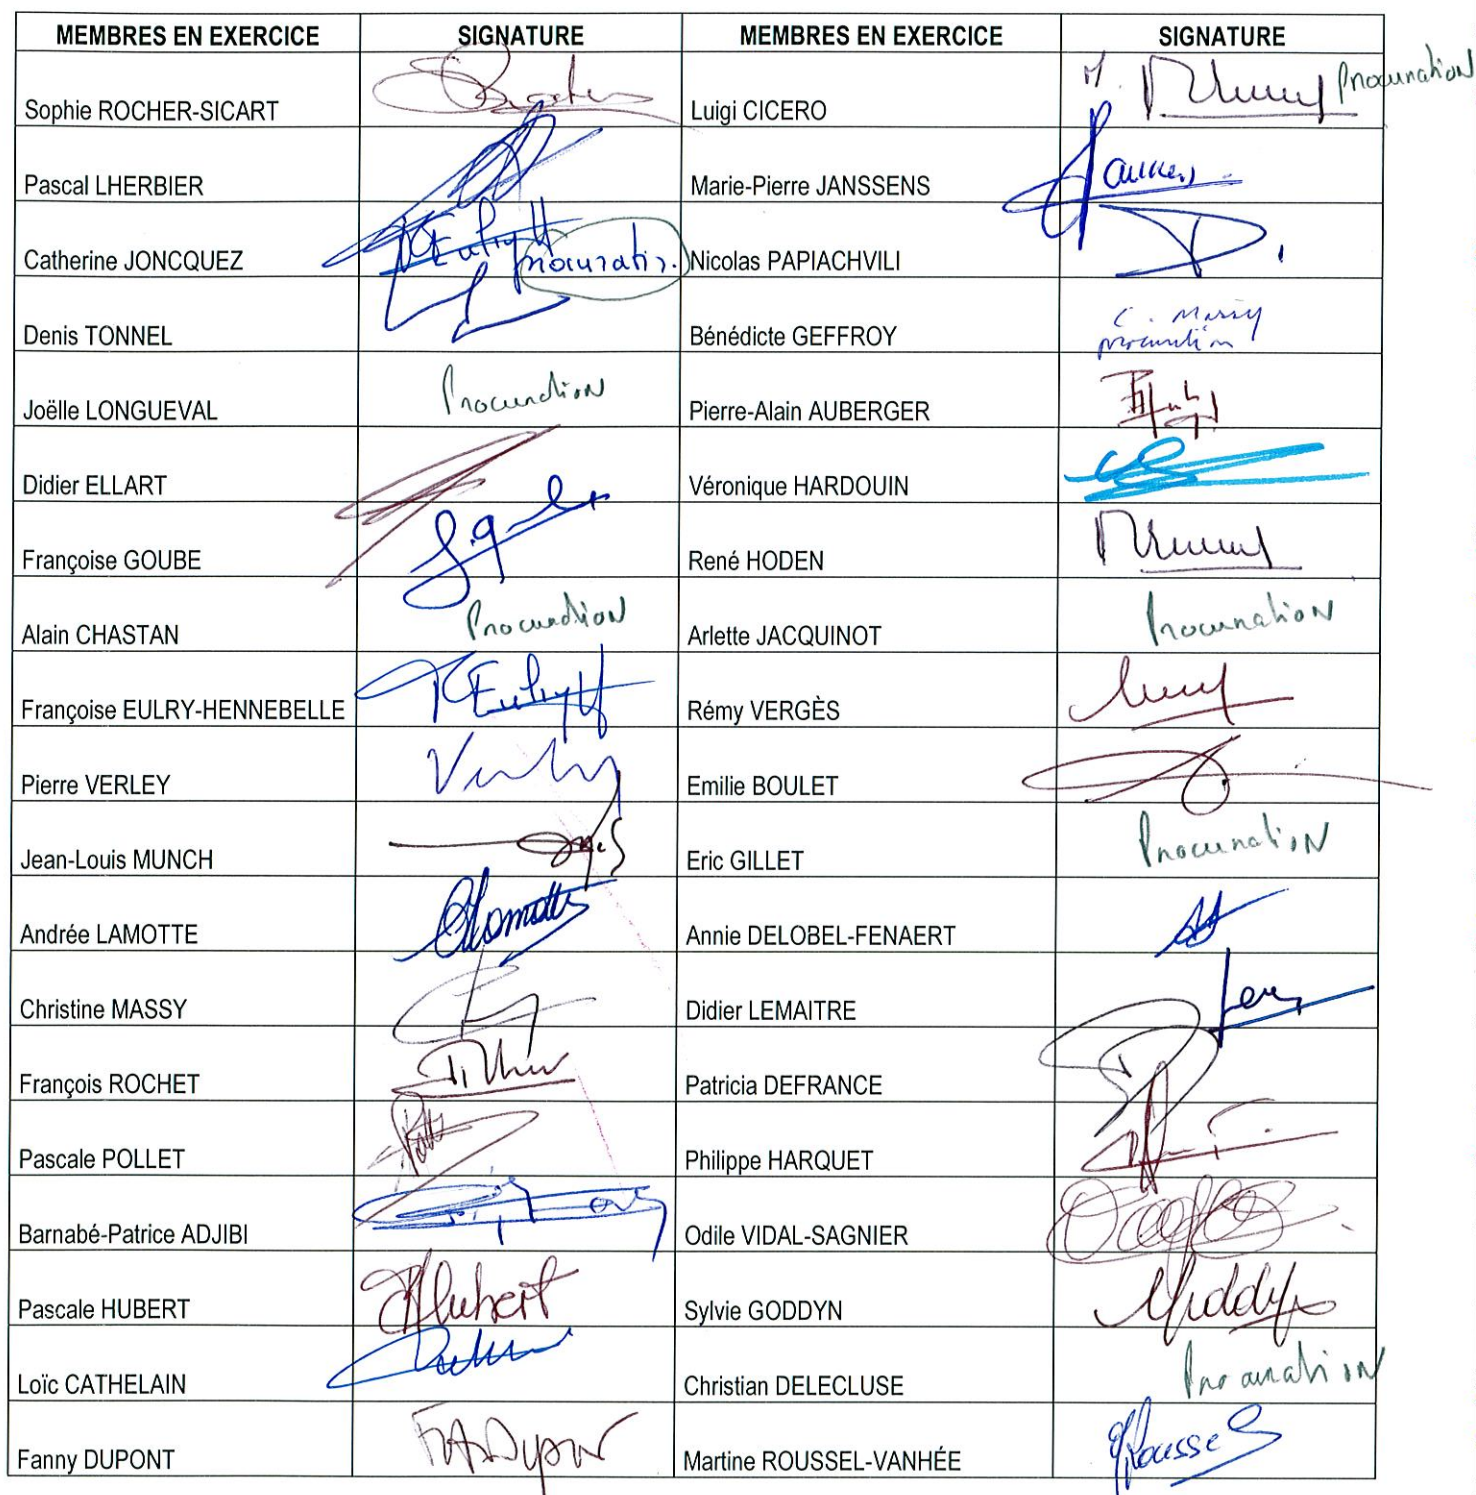 MEMBRES EN EXERCICE SIGNATURE MEMBRES EN EXERCICE SIGNATURE
Sophie ROCHER-SICART Luigi CICERO Procuration
Pascal LHERBIER Marie-Pierre JANSSENS
Catherine JONCQUEZ procuration Nicolas PAPIACHVILI
Denis TONNEL Bénédicte GEFFROY C. Massy
procuration
Joëlle LONGUEVAL Procuration Pierre-Alain AUBERGER
Didier ELLART Véronique HARDOUIN
Françoise GOUBE René HODEN
Alain CHASTAN Procuration Arlette JACQUINOT Procuration
Françoise EULRY-HENNEBELLE Rémy VERGÈS
Pierre VERLEY Emilie BOULET
Jean-Louis MUNCH Eric GILLET Procuration
Andrée LAMOTTE Annie DELOBEL-FENAERT
Christine MASSY Didier LEMAITRE
François ROCHET Patricia DEFRANCE
Pascale POLLET Philippe HARQUET
Barnabé-Patrice ADJIBI Odile VIDAL-SAGNIER
Pascale HUBERT Hubert Sylvie GODDYN
Loïc CATHELAIN Christian DELECLUSE Procuration
Fanny DUPONT Martine ROUSSEL-VANHÉE